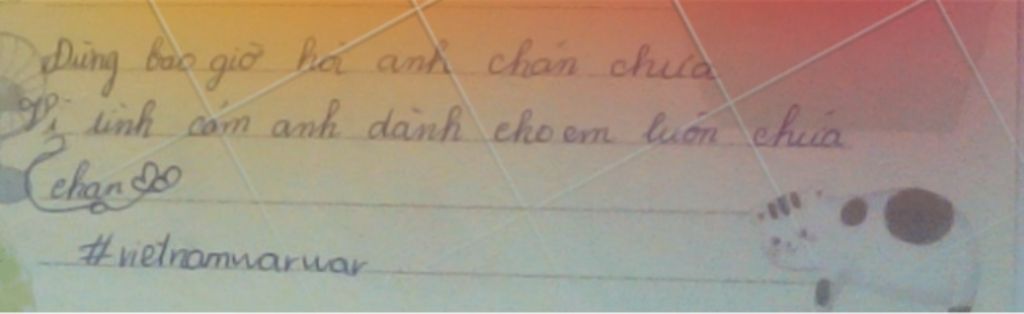 Đừng bao giờ hỏi anh chán chưa
Vì tình cảm anh dành cho em luôn chứa
chan
#vietnamwarwar